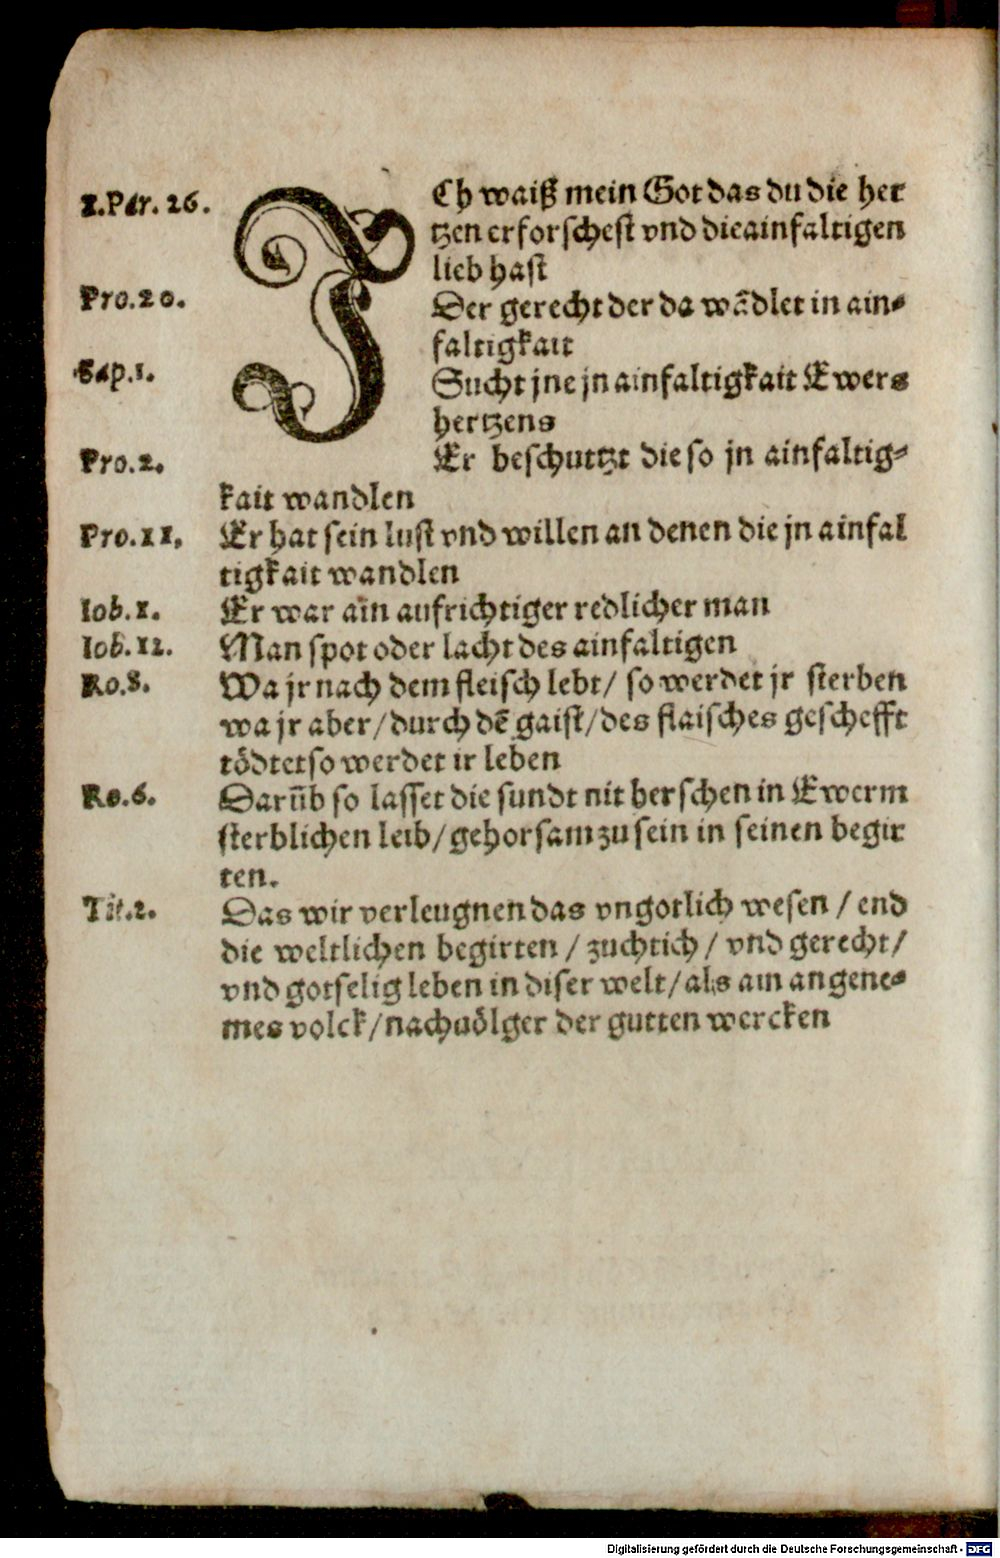 1.Par. 26. ICh waiß mein Got das du die her
tzen erforschest vnd die ainfaltigen
lieb hast
Pro.20. Der gerecht der da wādlet in ain⸗
faltigkait
Sap.1. Sucht jne jn ainfaltigkait Ewers
hertzens
Pro.2. Er beschuttzt die so jn ainfaltig⸗
kait wandlen
Pro.11. Er hat sein lust vnd willen an denen die jn ainfal
tigkait wandlen
Iob.1. Er war ain aufrichtiger redlicher man
Iob.12. Man spot oder lacht des ainfaltigen
Ro.8. Wa jr nach dem fleisch lebt/ so werdet jr sterben
wa jr aber/durch dē gaist/des flaisches geschefft
tödtet so werdet ir leben
Ro.6. Darūb so lasset die sundt nit herschen in Ewerm
sterblichen leib/gehorsam zu sein in seinen begir
ten.
Tit.2. Das wir verleugnen das vngotlich wesen / end
die weltlichen begirten / zuchtich / vnd gerecht/
vnd gotselig leben in diser welt/als ain angene⸗
mes volck/nachuölger der gutten wercken
Digitalisierung gefördert durch die Deutsche Forschungsgemeinschaft - DFG